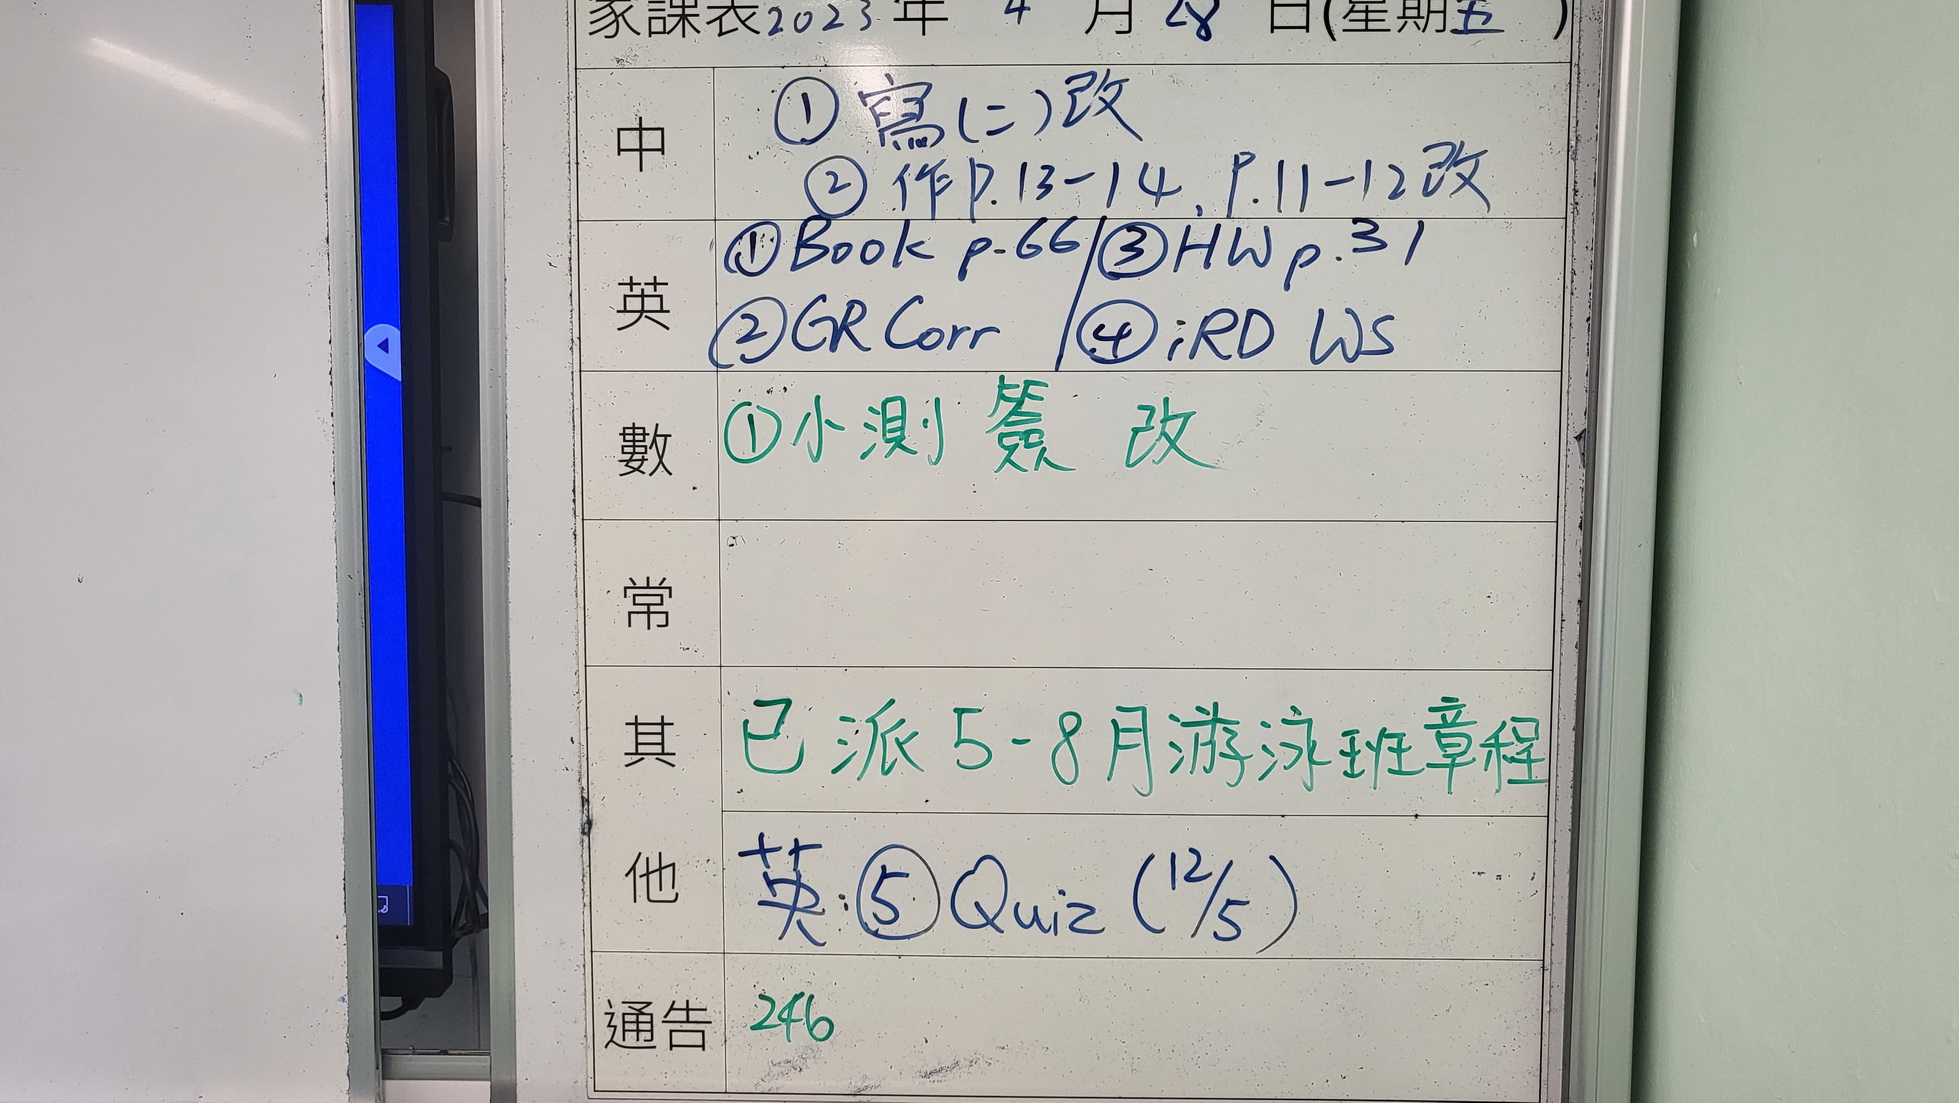 家課表2023年 4 月 28 日(星期五 )
中
① 寫(二)改
② 作P.13-14, P.11-12改
英
①Book p.66/③HW p.31
②GR Corr /④iRD WS
數
①小測 簽 改
常
其他
已派5-8月游泳班章程
英:⑤Quiz (12/5)
通告 246